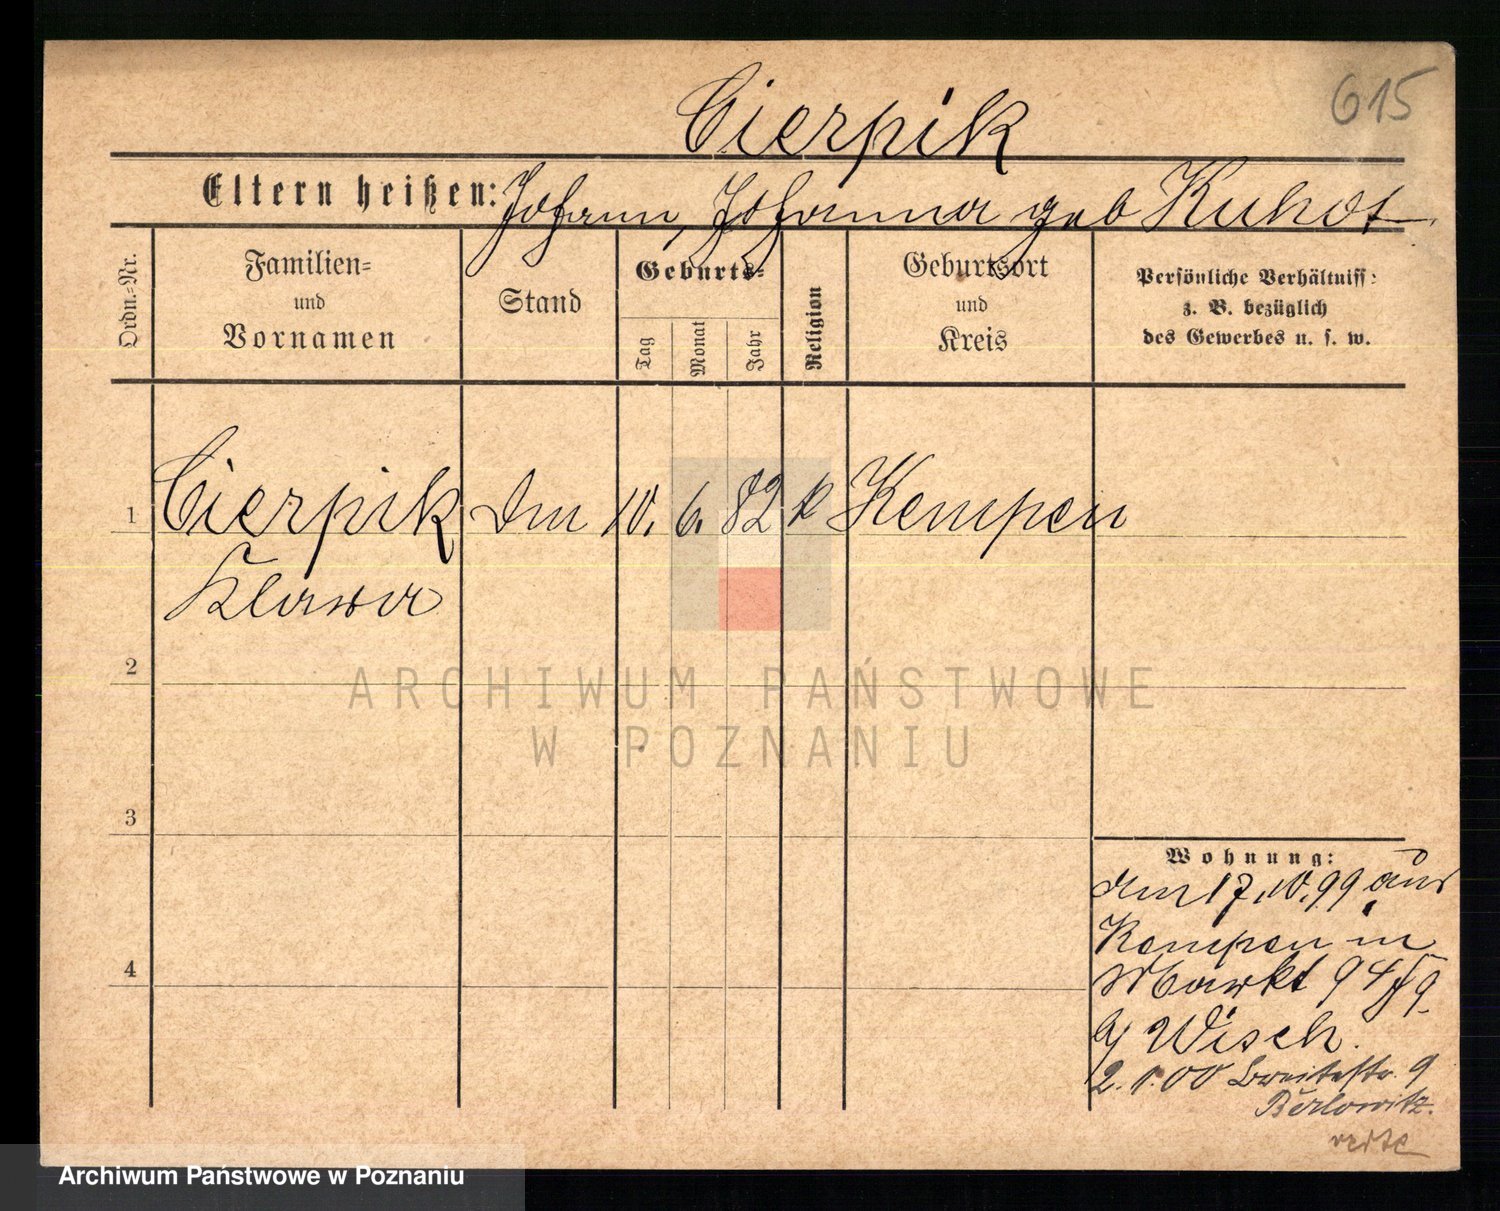 615
Cierpik
Eltern heißen: Johann, Johanna geb Kuhot
Ordn.-Nr.
Familien-
und
Vornamen
Stand
Geburts-
Tag
Monat
Jahr
Religion
Geburtsort
und
Kreis
Persönliche Verhältniss:
z. B. bezüglich
des Gewerbes u. s. w.
1 Cierpik Dm 10. 6. 82 k Kempen
Klara
2
ARCHIWUM PAŃSTWOWE
W POZNANIU
3
Wohnung:
am 17.10.99 aus
Kempen in
4
Markt 94
b/ Wisch.
2.1.00 Breitestr. 9
Berlowitz.
Archiwum Państwowe w Poznaniu